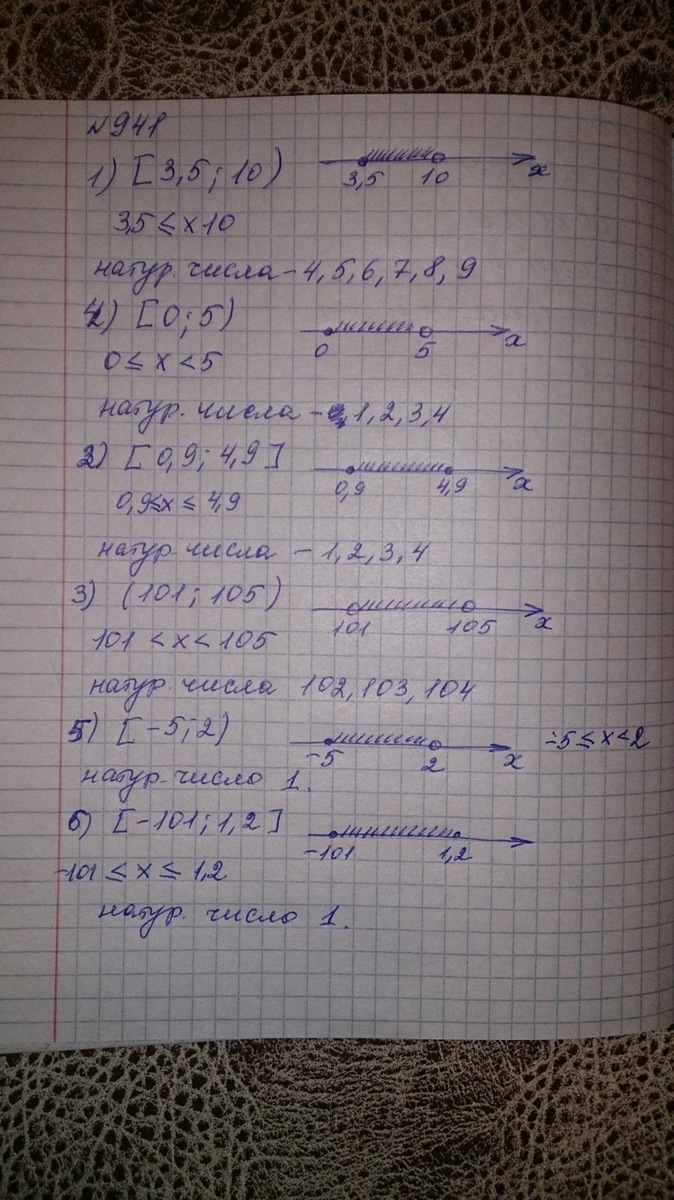 №941
1) [3,5; 10)
3,5 10 x
3,5 ≤ x 10
натур. числа – 4, 5, 6, 7, 8, 9
4) [0; 5)
0 5 x
0 ≤ x < 5
натур. числа – 1, 2, 3, 4
2) [0,9; 4,9]
0,9 4,9 x
0,9 ≤ x ≤ 4,9
натур. числа – 1, 2, 3, 4
3) (101; 105)
101 105 x
101 < x < 105
натур. числа 102, 103, 104
5) [-5; 2)
-5 2 x -5 ≤ x < 2
натур. число 1.
6) [-101; 1,2]
-101 1,2
-101 ≤ x ≤ 1,2
натур. число 1.